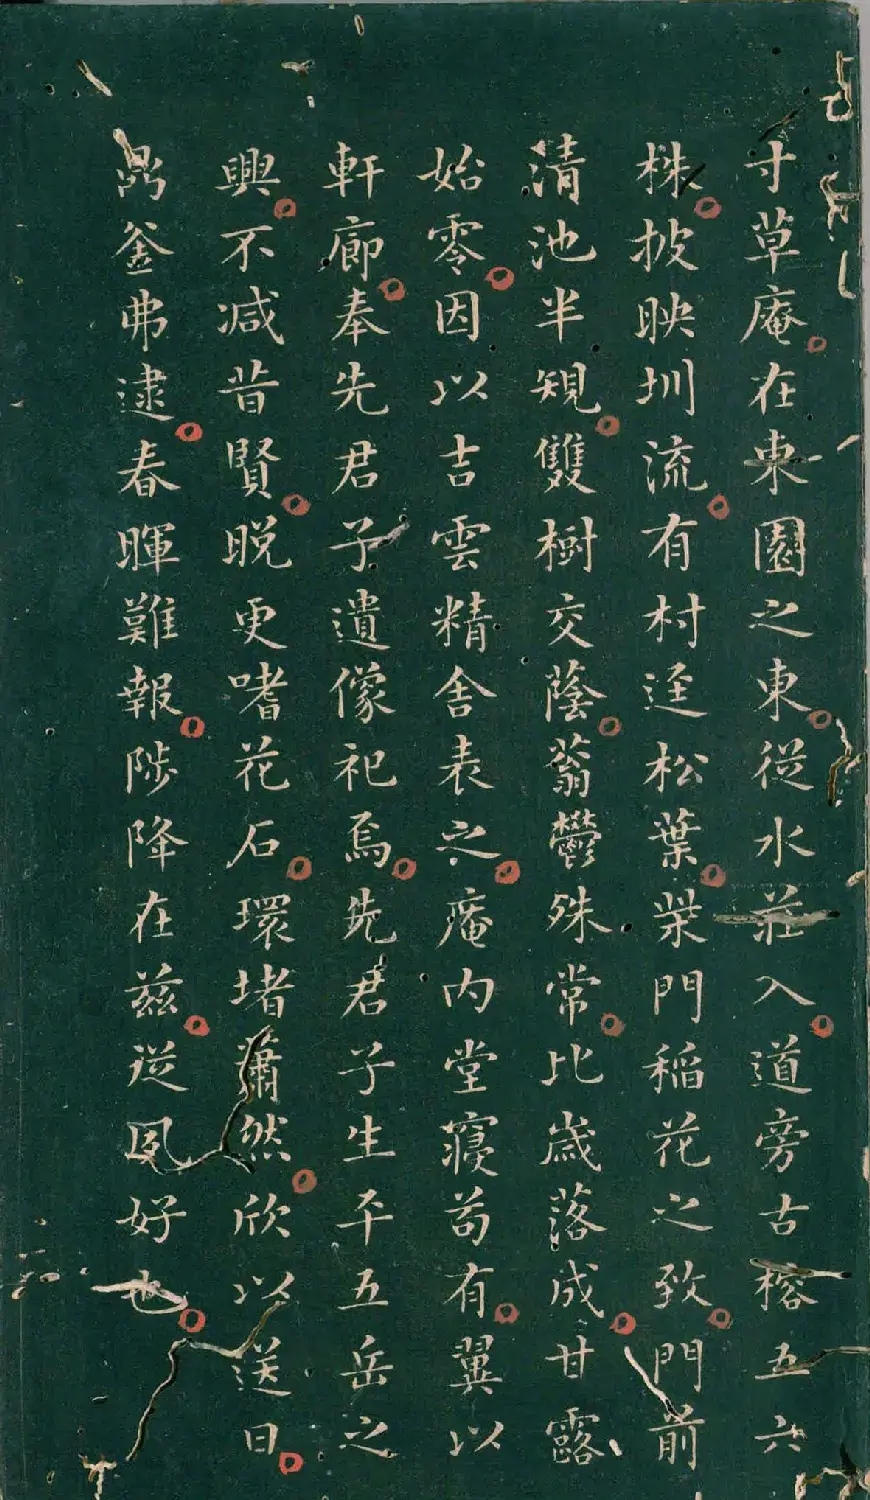 寸草庵在東園之東從水莊入道旁古榕五六
株披映圳流有村逕松葉柴門稻花之致門前
清池半規雙樹交蔭蓊鬱殊常比歲落成甘露
始零因以吉雲精舍表之庵內堂寢苟有翼以
軒廊奉先君子遺像祀焉先君子生平五岳之
興不减昔賢晚更嗜花石環堵蕭然欣以送日
鼎釜弗逮春暉難報陟降在兹從夙好也